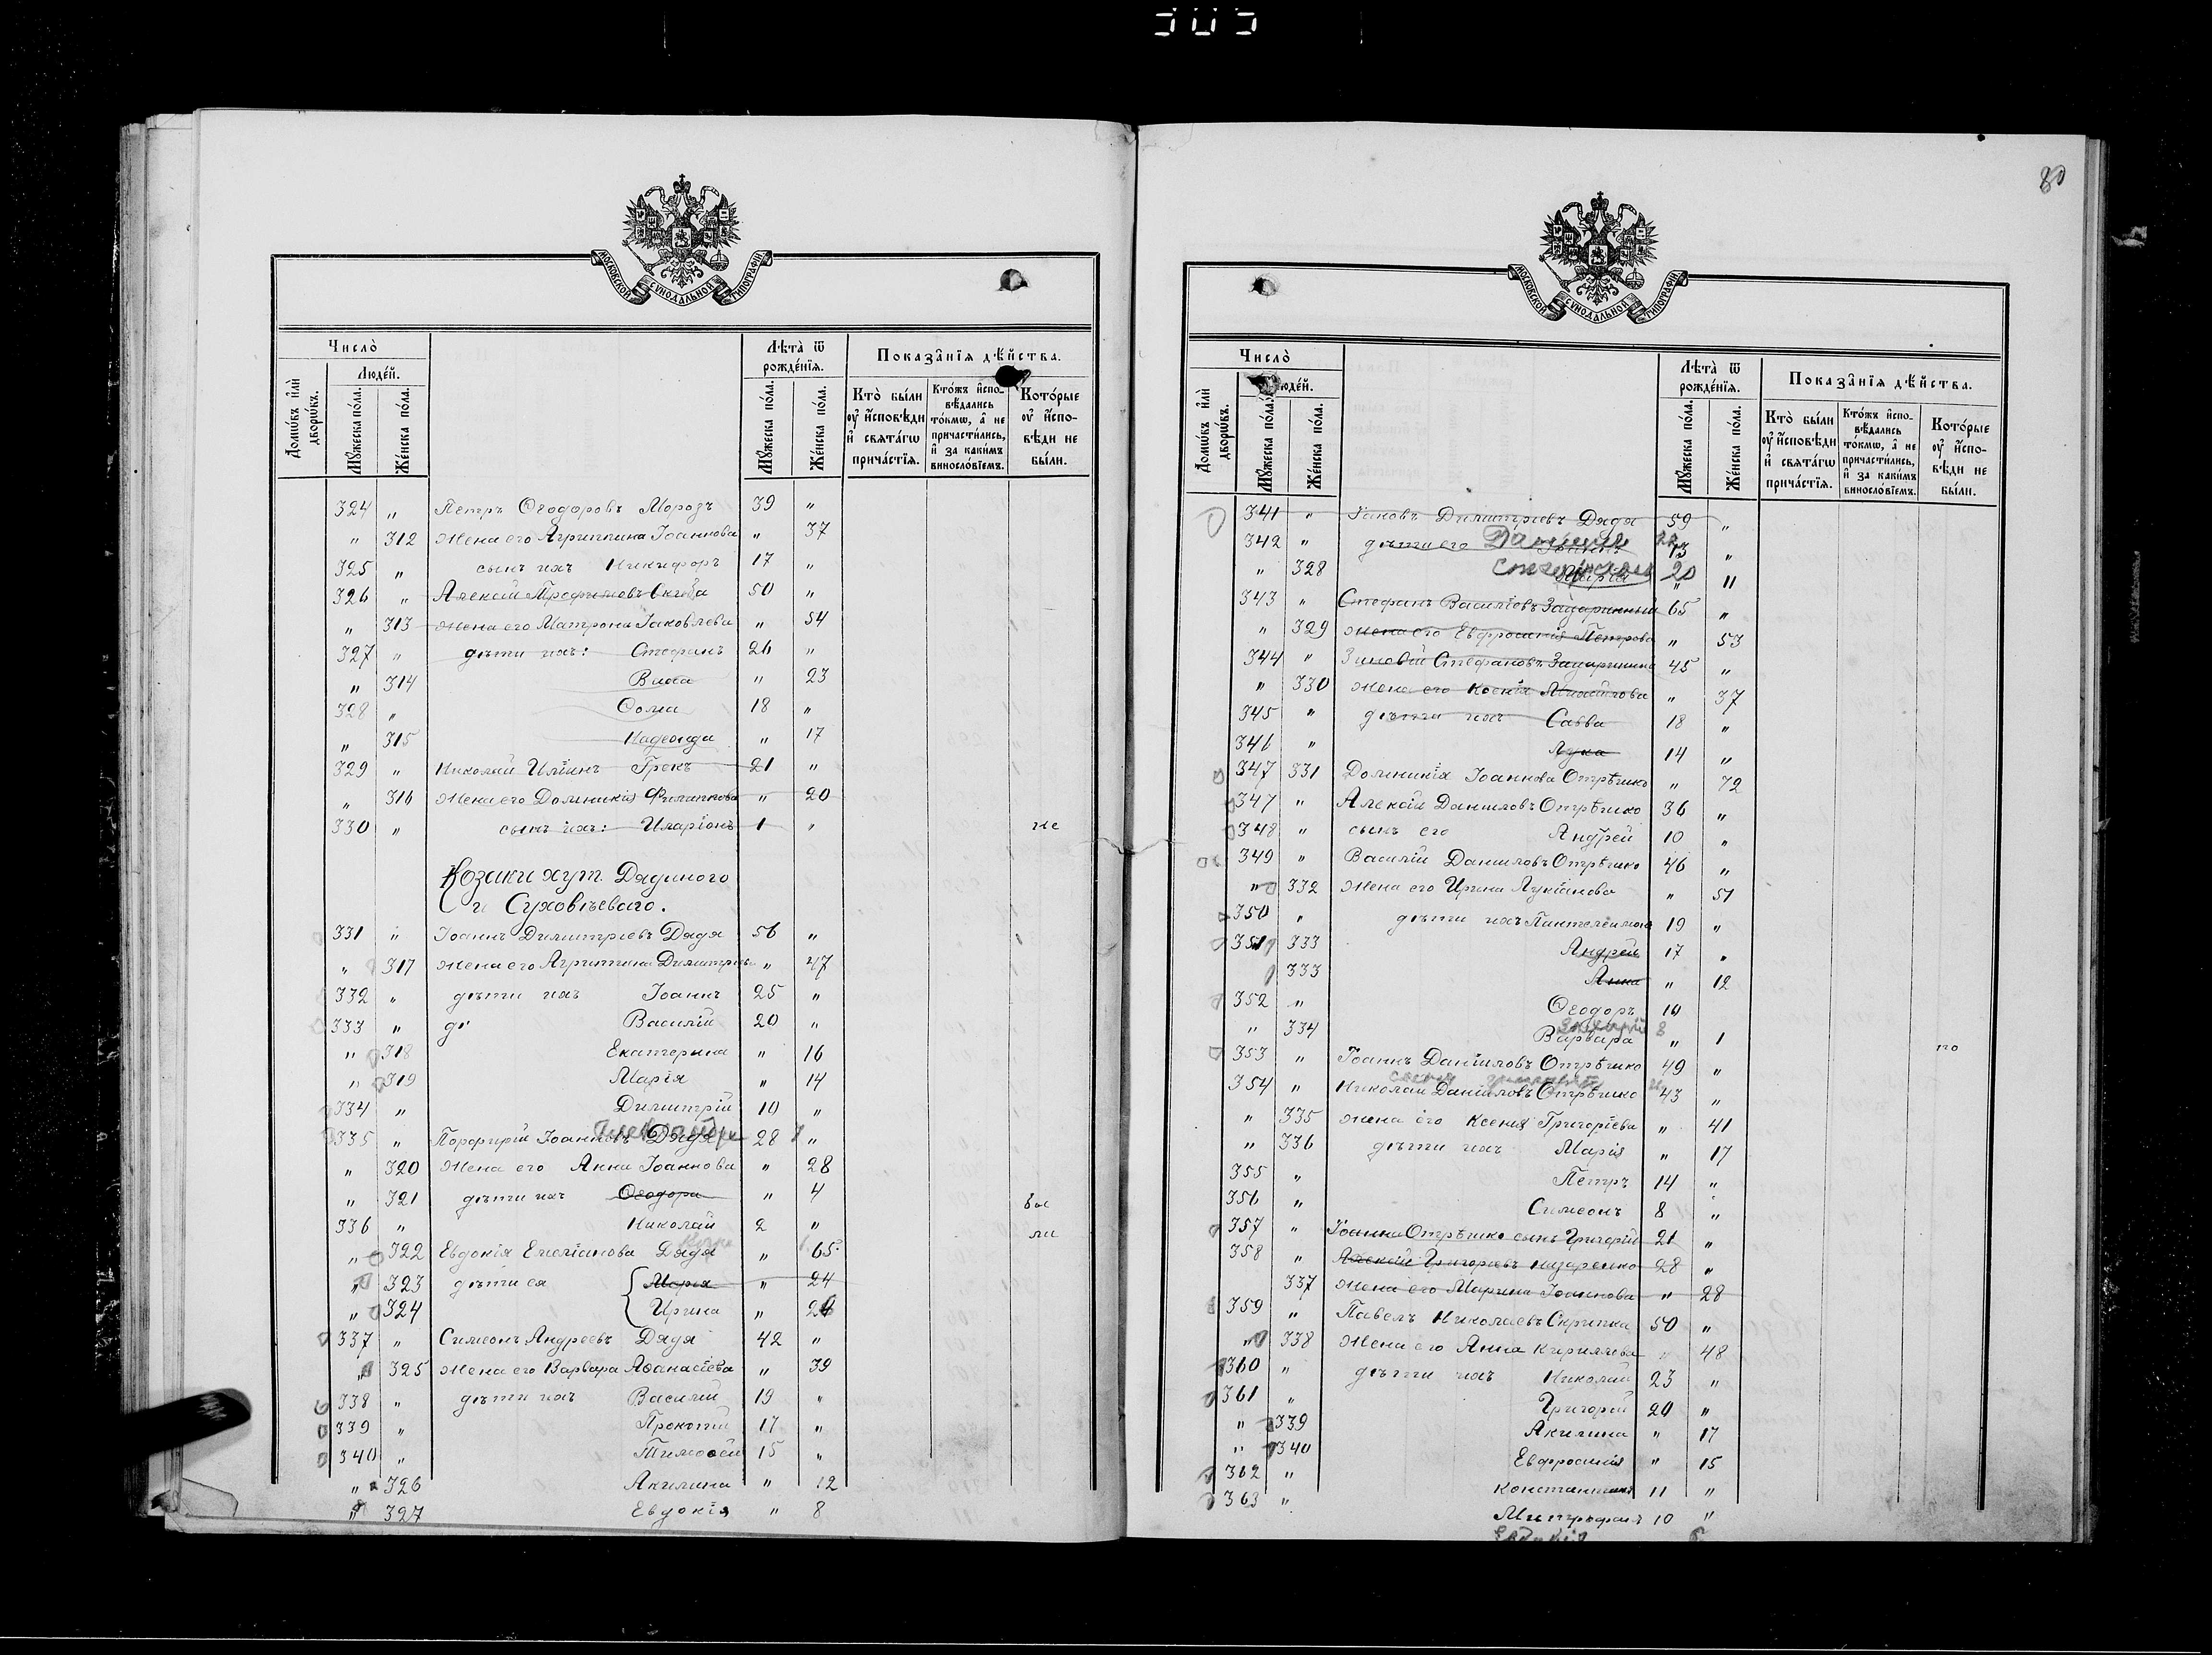 80
МОСКОВСКОЙ СѴНОДАЛЬНОЙ ТИПОГРАФІИ
Число̀
Люде́й.
Домѡ́въ и҆лѝ дворѡ́въ.
Мꙋ́жеска по́ла.
Же́нска по́ла.
Лѣ́та ѿ рожде́нїѧ.
Мꙋ́жеска по́ла.
Же́нска по́ла.
Показа̂нїѧ дѣ́йства.
Кто̀ бы́ли ᲂу҆ и҆́сповѣди и҆ свѧта́гѡ прича́стїѧ.
Кто́жъ и҆спо-вѣ́дались то́кмѡ, а҆ не причасти́лись, и҆ за каки́мъ винослові́емъ.
Кото́рые ᲂу҆ и҆́спо-вѣди не бы́ли.
324 " Петръ Ѳеодоровъ Морозъ 39 "
" 312 Жена его Агриппина Іоаннова " 37
325 " сынъ ихъ Никифоръ 17 "
326 " Алексій Трофимовъ 50 "
" 313 Жена его Матрона Іаковлева " 54
327 " дѣти ихъ: Стефанъ 26 "
" 314 " 23
328 " Ѳома 18 "
" 315 Надежда " 17
329 " Николай Иліинъ Грекъ 21 "
" 316 Жена его Домникія Филиппова " 20
330 " сынъ ихъ: Иларіонъ 1 " не
Козаки хут. Дядиного
и Суховіевого.
331 " Іоаннъ Димитріевъ Дядя 56 "
" 317 Жена его Агриппина Димитріева " 47
332 " дѣти ихъ Іоаннъ 25 "
333 " Василій 20 "
" 318 Екатерина " 16
" 319 Марія " 14
334 " Димитрій 10 "
335 " Порфирій Іоанновъ Дядя 28 "
" 320 Жена его Анна Іоаннова " 28
" 321 дѣти ихъ Ѳеодора " 4 бы
336 " Николай 2 " ли
" 322 Евдокія Емеліанова Дядя " 65
" 323 дѣти ея Марія " 24
" 324 Ирина "
337 " Симеонъ Андреевъ Дядя 42 "
" 325 Жена его Варвара Аѳанасіева " 39
338 " дѣти ихъ Василій 19 "
339 " Прокопій 17 "
340 " Тимоѳей 15 "
" 326 Акилина " 12
" 327 Евдокія " 8
МОСКОВСКОЙ СѴНОДАЛЬНОЙ ТИПОГРАФІИ
Число̀
Люде́й.
Домѡ́въ и҆лѝ дворѡ́въ.
Мꙋ́жеска по́ла.
Же́нска по́ла.
Лѣ́та ѿ рожде́нїѧ.
Мꙋ́жеска по́ла.
Же́нска по́ла.
Показа̂нїѧ дѣ́йства.
Кто̀ бы́ли ᲂу҆ и҆́сповѣди и҆ свѧта́гѡ прича́стїѧ.
Кто́жъ и҆спо-вѣ́дались то́кмѡ, а҆ не причасти́лись, и҆ за каки́мъ винослові́емъ.
Кото́рые ᲂу҆ и҆́спо-вѣди не бы́ли.
341 " Іаковъ Димитріевъ Дядя 59 "
342 " дѣти его 13 "
" 328 Марія 20 " 11
343 " Стефанъ Василіевъ Зацаринный 65 "
" 329 Жена его Евфросинія Петрова " 53
344 " Зиновій Стефановъ 45 "
" 330 Жена его Ксенія Михайлова " 37
345 " дѣти ихъ Савва 18 "
346 " Лука 14 "
347 331 Домникія Іоаннова Отрѣшко " 72
347 " Алексій Даниловъ Отрѣшко 36 "
348 " сынъ его Андрей 10 "
349 " Василій Даниловъ Отрѣшко 46 "
" 332 Жена его Ирина Лукіанова " 51
350 " дѣти ихъ Пантелеимонъ 19 "
351 333 Андрей 17 "
333 Анна " 12
352 " Ѳеодоръ
" 334 Варвара " 1 то
353 " Іоаннъ Даніиловъ Отрѣшко 49 "
354 " Николай Даніиловъ Отрѣшко 43 "
" 335 жена его Ксенія Григоріева " 41
" 336 дѣти ихъ Марія " 17
355 " Петръ 14 "
356 " Симеонъ 8 "
357 " Іоанна Отрѣшко сынъ Григорій 21 "
358 " Алексій Григоріевъ Назаренко 28 "
337 Жена его Марина Іоаннова " 28
359 " Павелъ Николаевъ Скрипка 50 "
" 338 Жена его Анна Кириллова " 48
360 " дѣти ихъ Николай 23 "
361 " Григорій 20 "
" 339 Акилина " 17
" 340 Евфросинія " 15
362 " Константинъ 11 "
363 " Митрофанъ 10 "